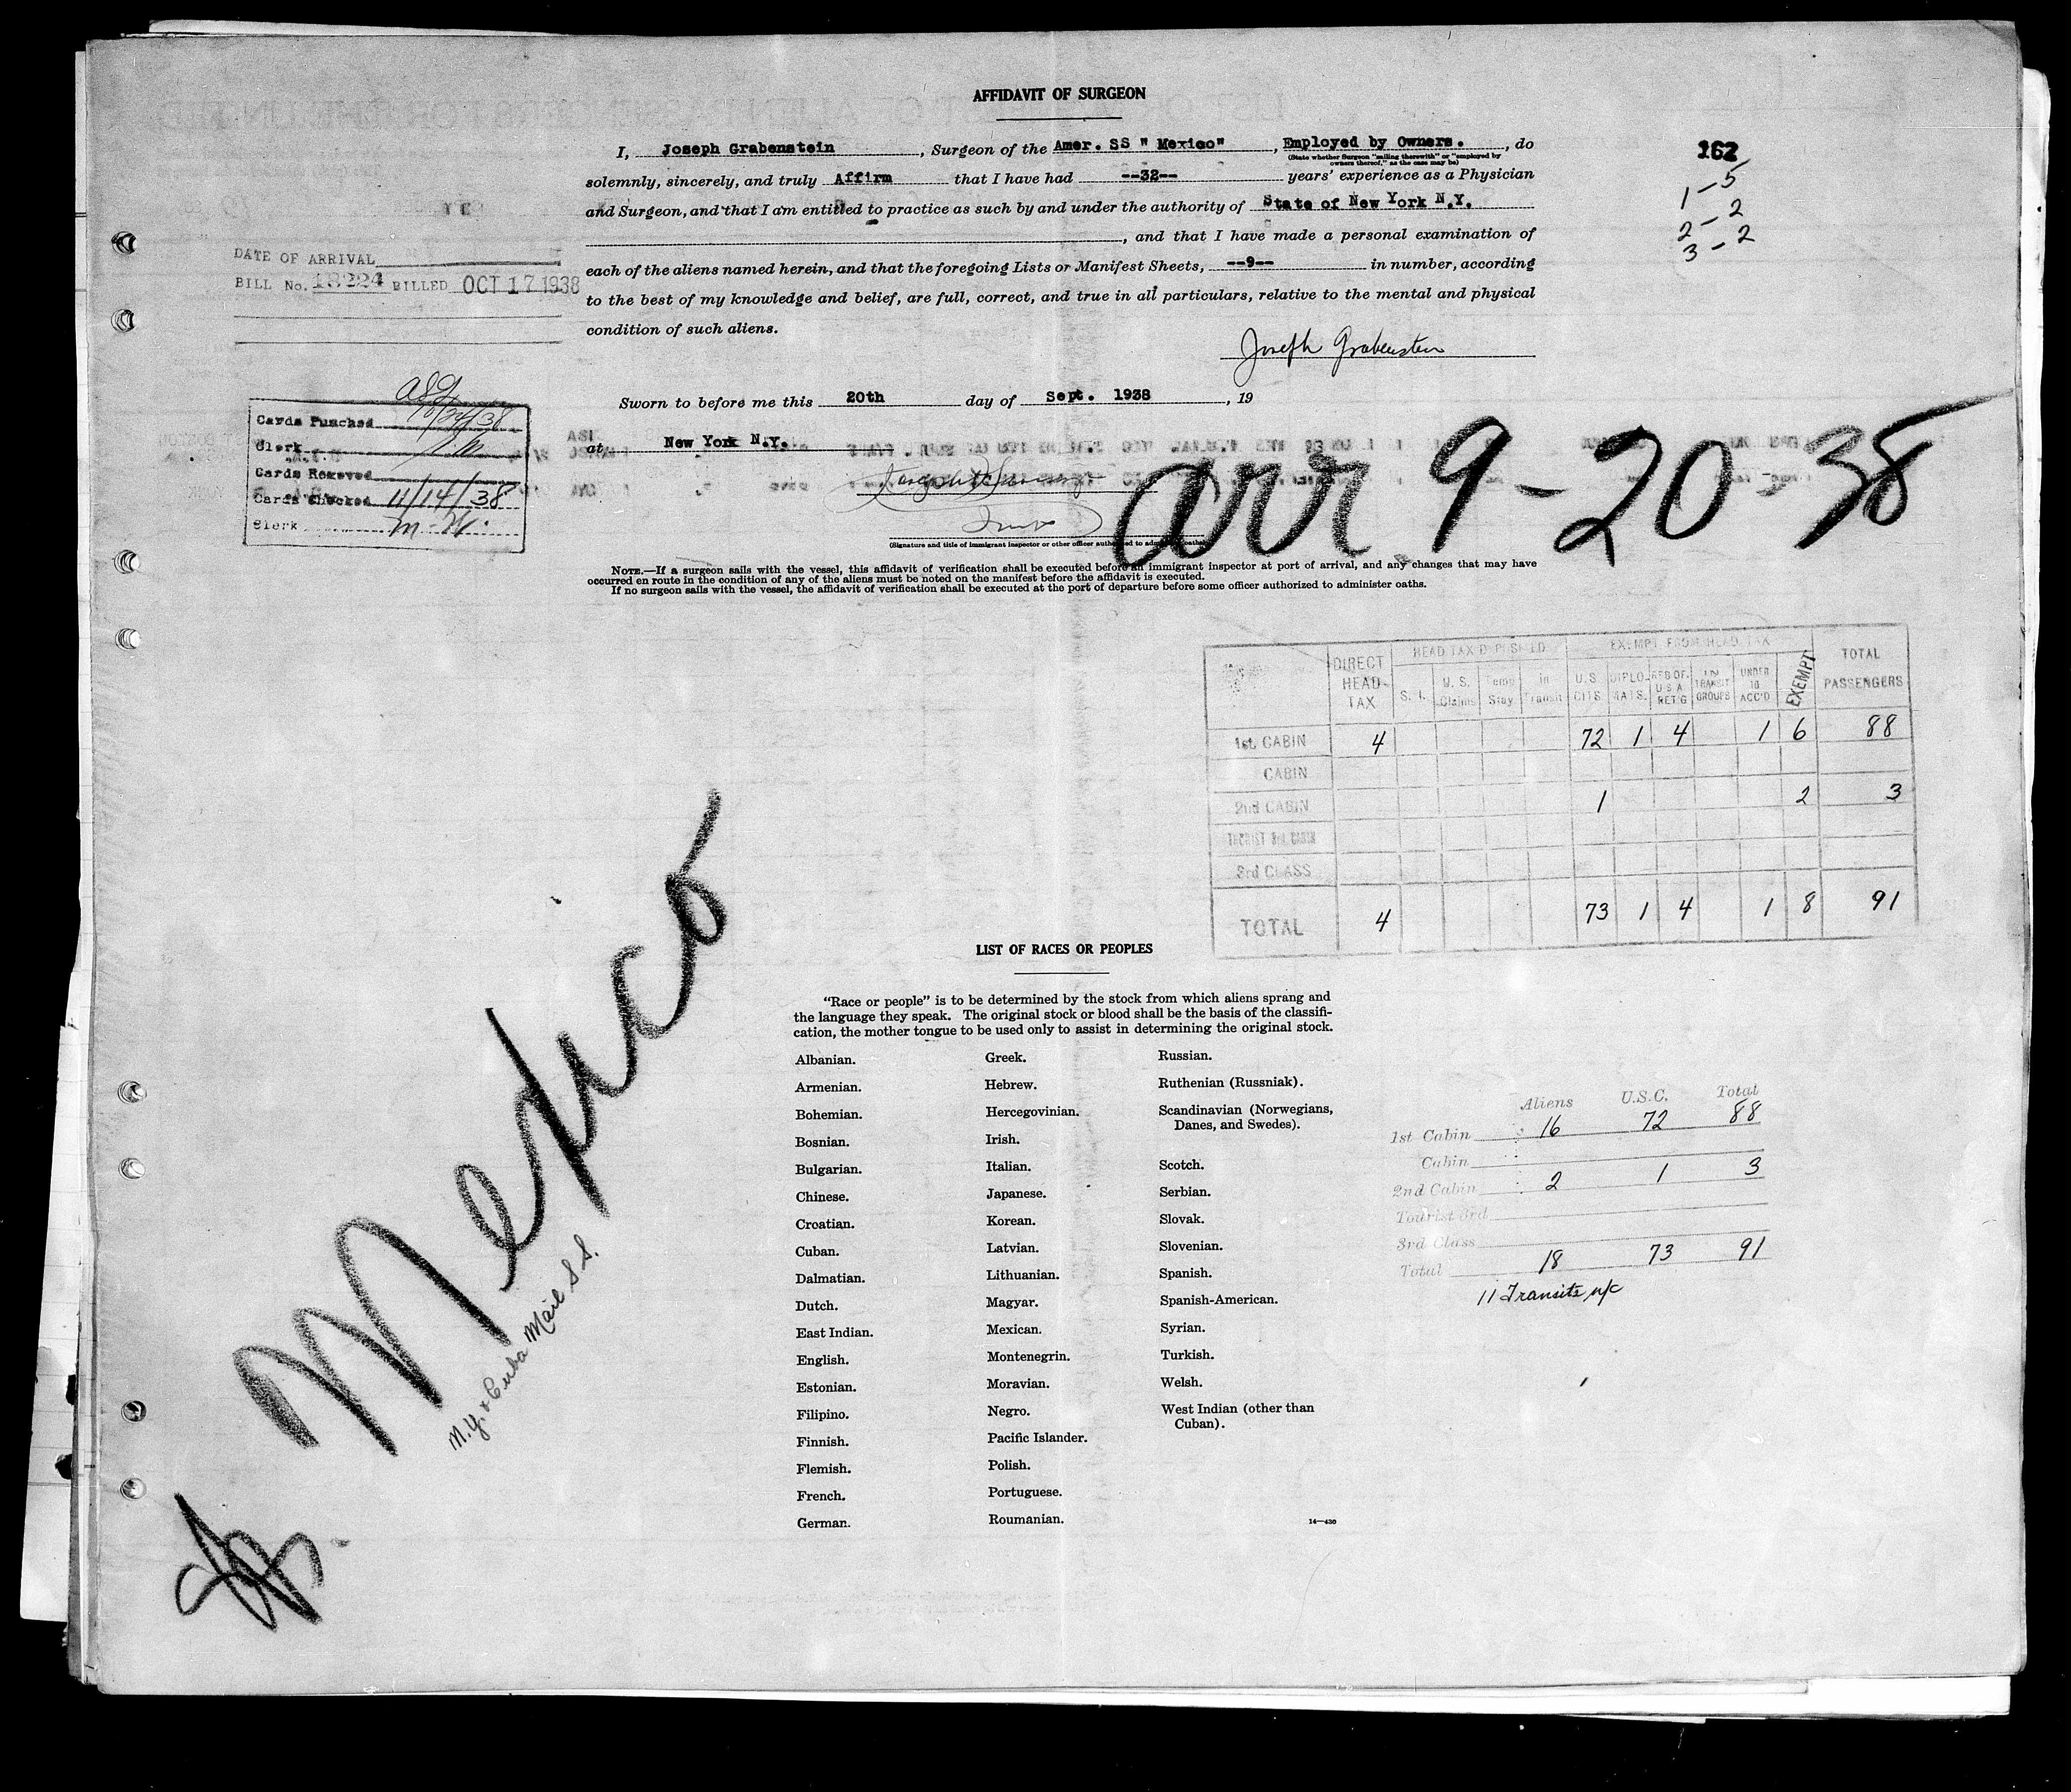 AFFIDAVIT OF SURGEON
I, Joseph Grabenstein, Surgeon of the Amer. SS " Mexico", Employed by Owners., do
(State whether Surgeon "sailing therewith" or "employed by owners thereof," as the case may be)
solemnly, sincerely, and truly Affirm that I have had --32-- years' experience as a Physician
and Surgeon, and that I am entitled to practice as such by and under the authority of State of New York N.Y.
, and that I have made a personal examination of
each of the aliens named herein, and that the foregoing Lists or Manifest Sheets, --9-- in number, according
to the best of my knowledge and belief, are full, correct, and true in all particulars, relative to the mental and physical
condition of such aliens.
Joseph Grabenstein
Sworn to before me this 20th day of Sept. 1938, 19
at New York N.Y.
(Signature and title of immigrant inspector or other officer authorized to administer oaths)
NOTE.—If a surgeon sails with the vessel, this affidavit of verification shall be executed before an immigrant inspector at port of arrival, and any changes that may have
occurred en route in the condition of any of the aliens must be noted on the manifest before the affidavit is executed.
If no surgeon sails with the vessel, the affidavit of verification shall be executed at the port of departure before some officer authorized to administer oaths.
162
1-5
2-2
3-2
DATE OF ARRIVAL
BILL No. 18224 BILLED OCT 17 1938
Cards Punched 10/24/38
Clerk
Cards Removed
Cards Checked 11/14/38
Clerk
arr 9-20-38
DIRECT HEAD TAX
HEAD TAX DEPOSITED
EXEMPT FROM HEAD TAX
TOTAL PASSENGERS
S. I. U. S. Claims Temp Stay In Transit U.S. CITS. DIPLOMATS. RES OF U S A RET'G IN TRANSIT GROUPS UNDER 16 ACC'D EXEMPT
1st CABIN 4 72 1 4 1 6 88
CABIN
2nd CABIN 1 2 3
TOURIST 3rd CABIN
3rd CLASS
TOTAL 4 73 1 4 1 8 91
Mexico
N.Y. & Cuba Mail S.S.
LIST OF RACES OR PEOPLES
"Race or people" is to be determined by the stock from which aliens sprang and
the language they speak. The original stock or blood shall be the basis of the classifi-
cation, the mother tongue to be used only to assist in determining the original stock.
Albanian.
Armenian.
Bohemian.
Bosnian.
Bulgarian.
Chinese.
Croatian.
Cuban.
Dalmatian.
Dutch.
East Indian.
English.
Estonian.
Filipino.
Finnish.
Flemish.
French.
German.
Greek.
Hebrew.
Hercegovinian.
Irish.
Italian.
Japanese.
Korean.
Latvian.
Lithuanian.
Magyar.
Mexican.
Montenegrin.
Moravian.
Negro.
Pacific Islander.
Polish.
Portuguese.
Roumanian.
Russian.
Ruthenian (Russniak).
Scandinavian (Norwegians,
Danes, and Swedes).
Scotch.
Serbian.
Slovak.
Slovenian.
Spanish.
Spanish-American.
Syrian.
Turkish.
Welsh.
West Indian (other than
Cuban).
14—430
Aliens U.S.C. Total
1st Cabin 16 72 88
Cabin
2nd Cabin 2 1 3
Tourist 3rd
3rd Class
Total 18 73 91
11 Transits n/c